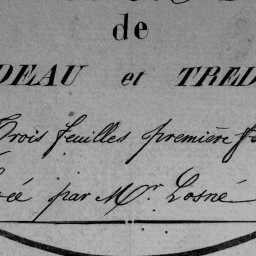 de
DEAU et TRED
Trois feuilles première
par Mr. Losné